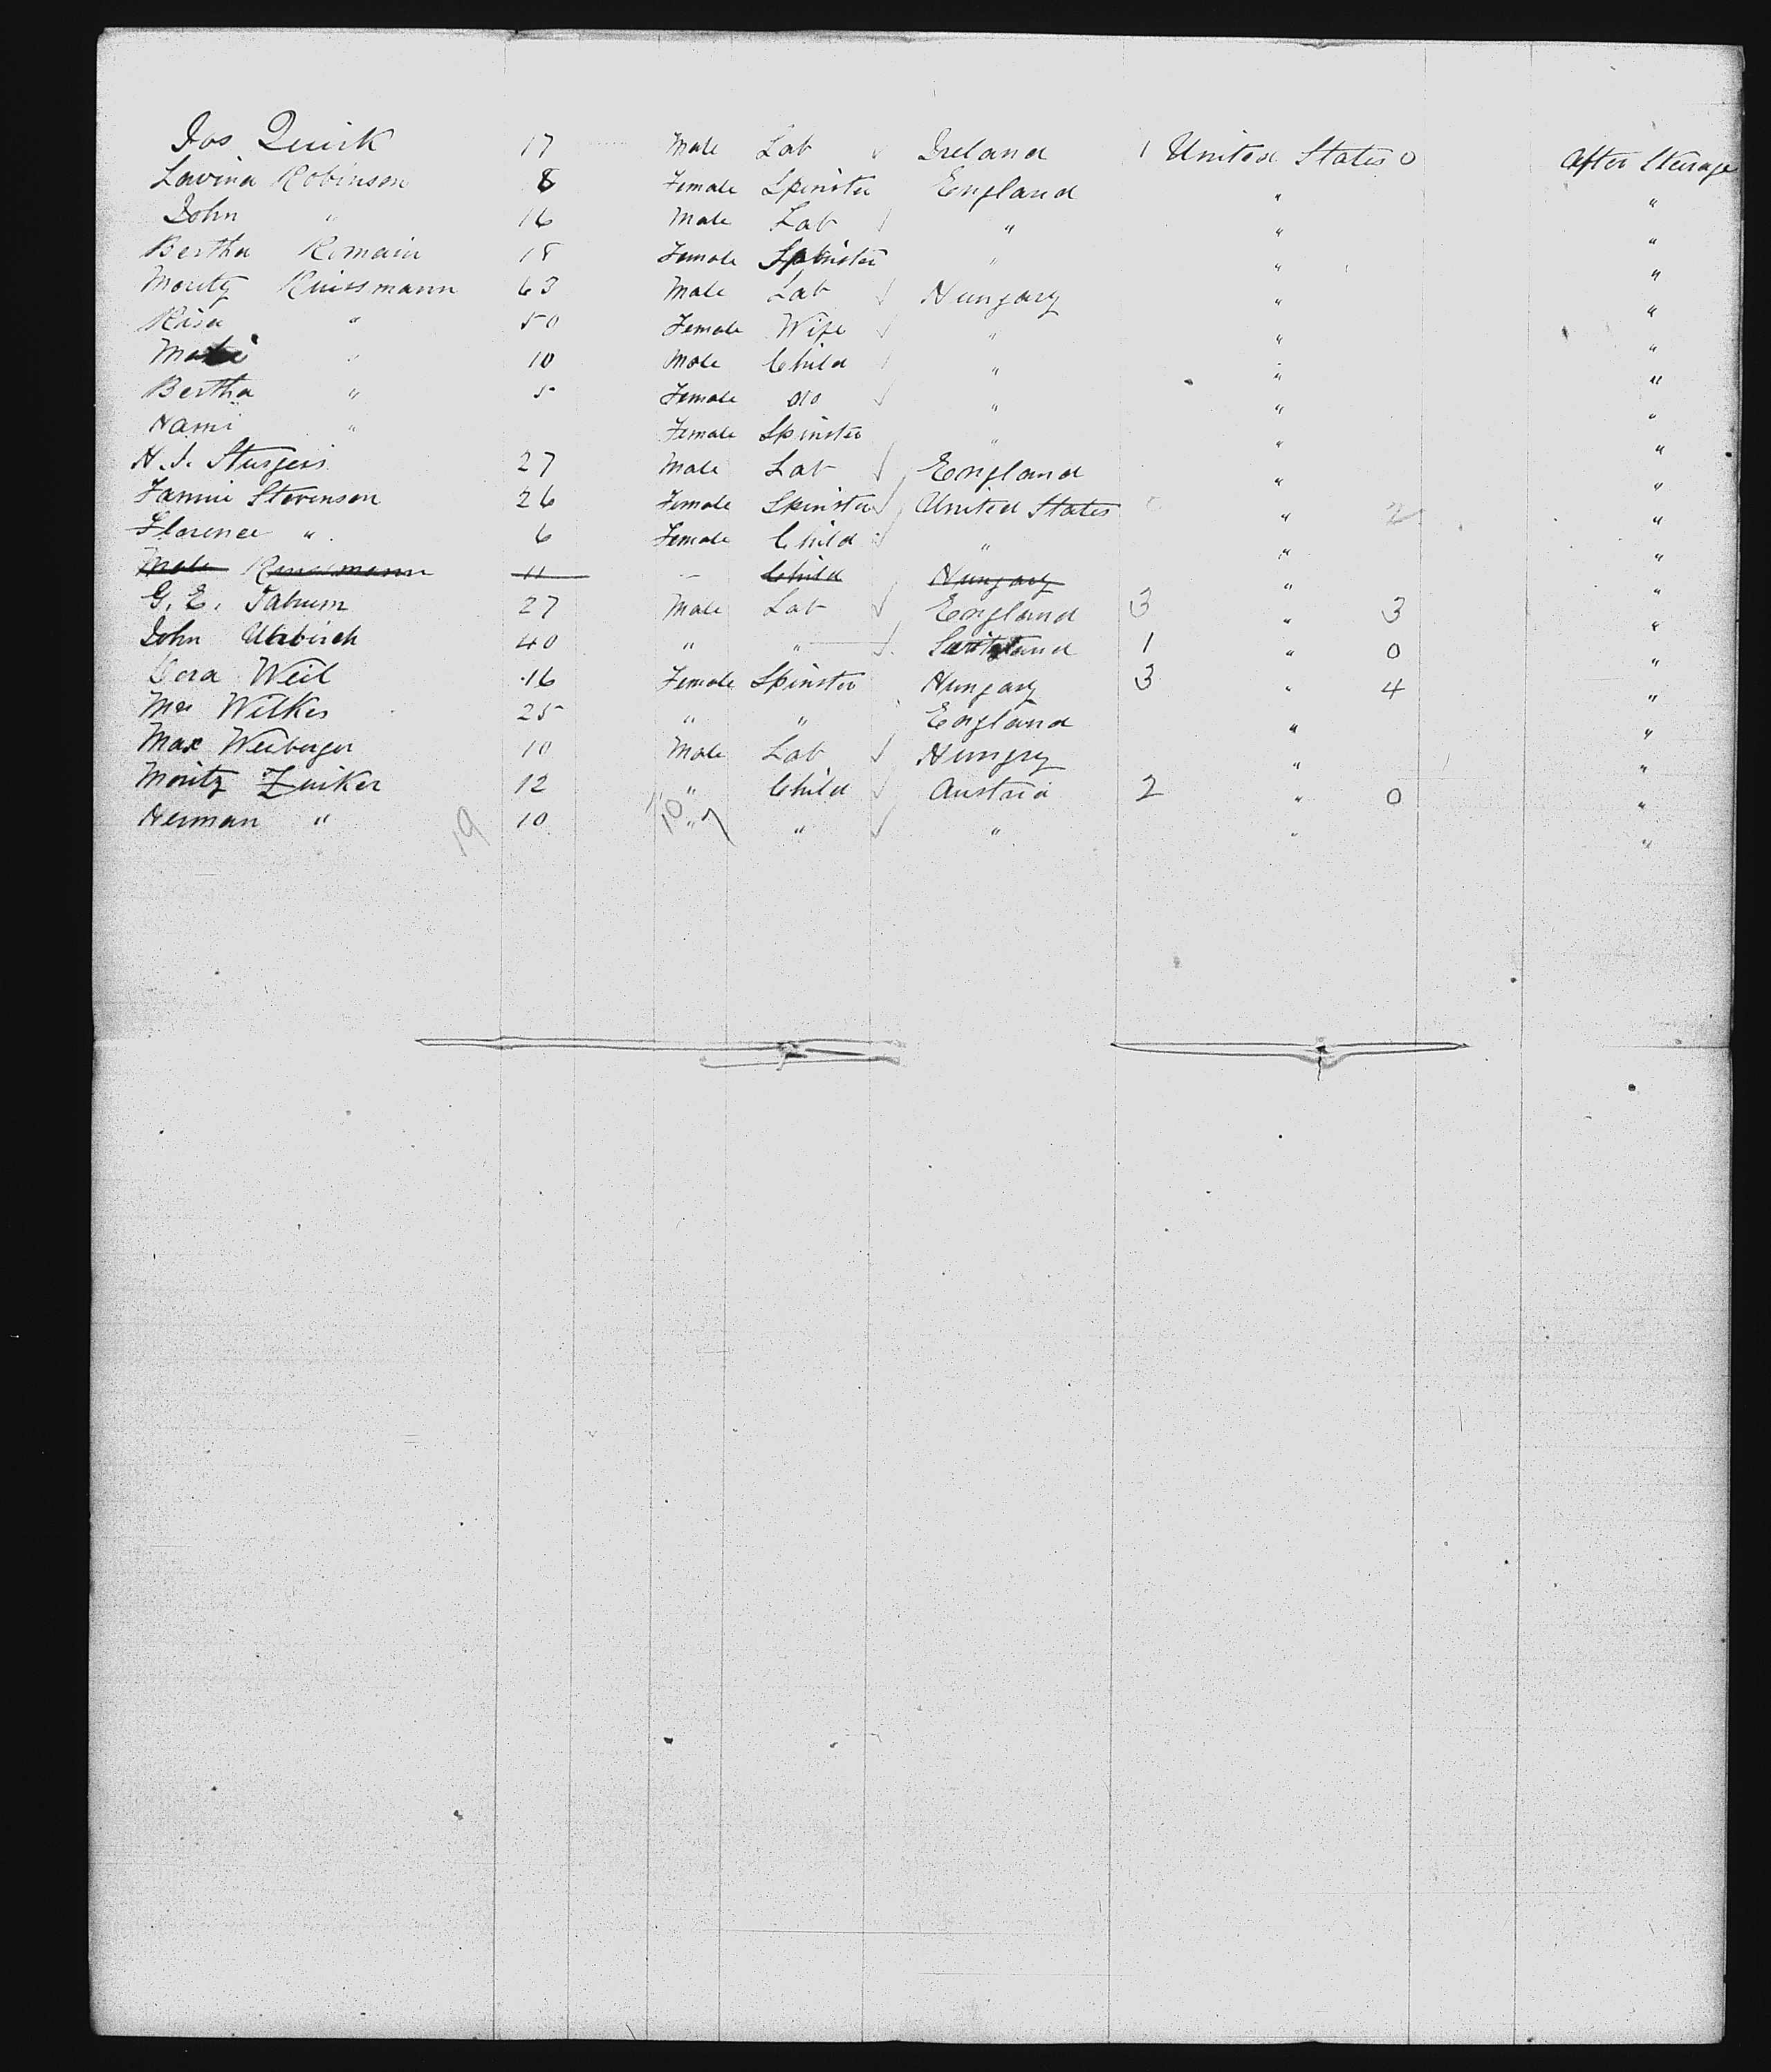 Jos Quirk 17 Male Lab Ireland 1 United States 0 After Steerage
Lavina Robinson 8 Female Spinster England " "
John " 16 Male Lab " " "
Bertha Romain 18 Female Spinster " " "
Moritz 63 Male Lab Hungary " "
Rosa " 50 Female Wife " " "
" 10 Male Child " " "
Bertha " 5 Female do " " "
Nami " Female Spinster " " "
H. J. Sturgeis 27 Male Lab England " "
Fannie Stevenson 26 Female Spinster United States " 2 "
Florence " 6 Female Child " " "
Male 11 Child Hungary " "
G. E. Tatum 27 Male Lab England 3 " 3 "
John 40 " " 1 " 0 "
Weil 16 Female Spinster Hungary 3 " 4 "
Mrs Wilkes 25 " " England " "
Max Weiberger 10 Male Lab Hungry " "
Moritz Zuiker 12 " Child Austria 2 " 0 "
Herman " 10 " " " " "
19 10